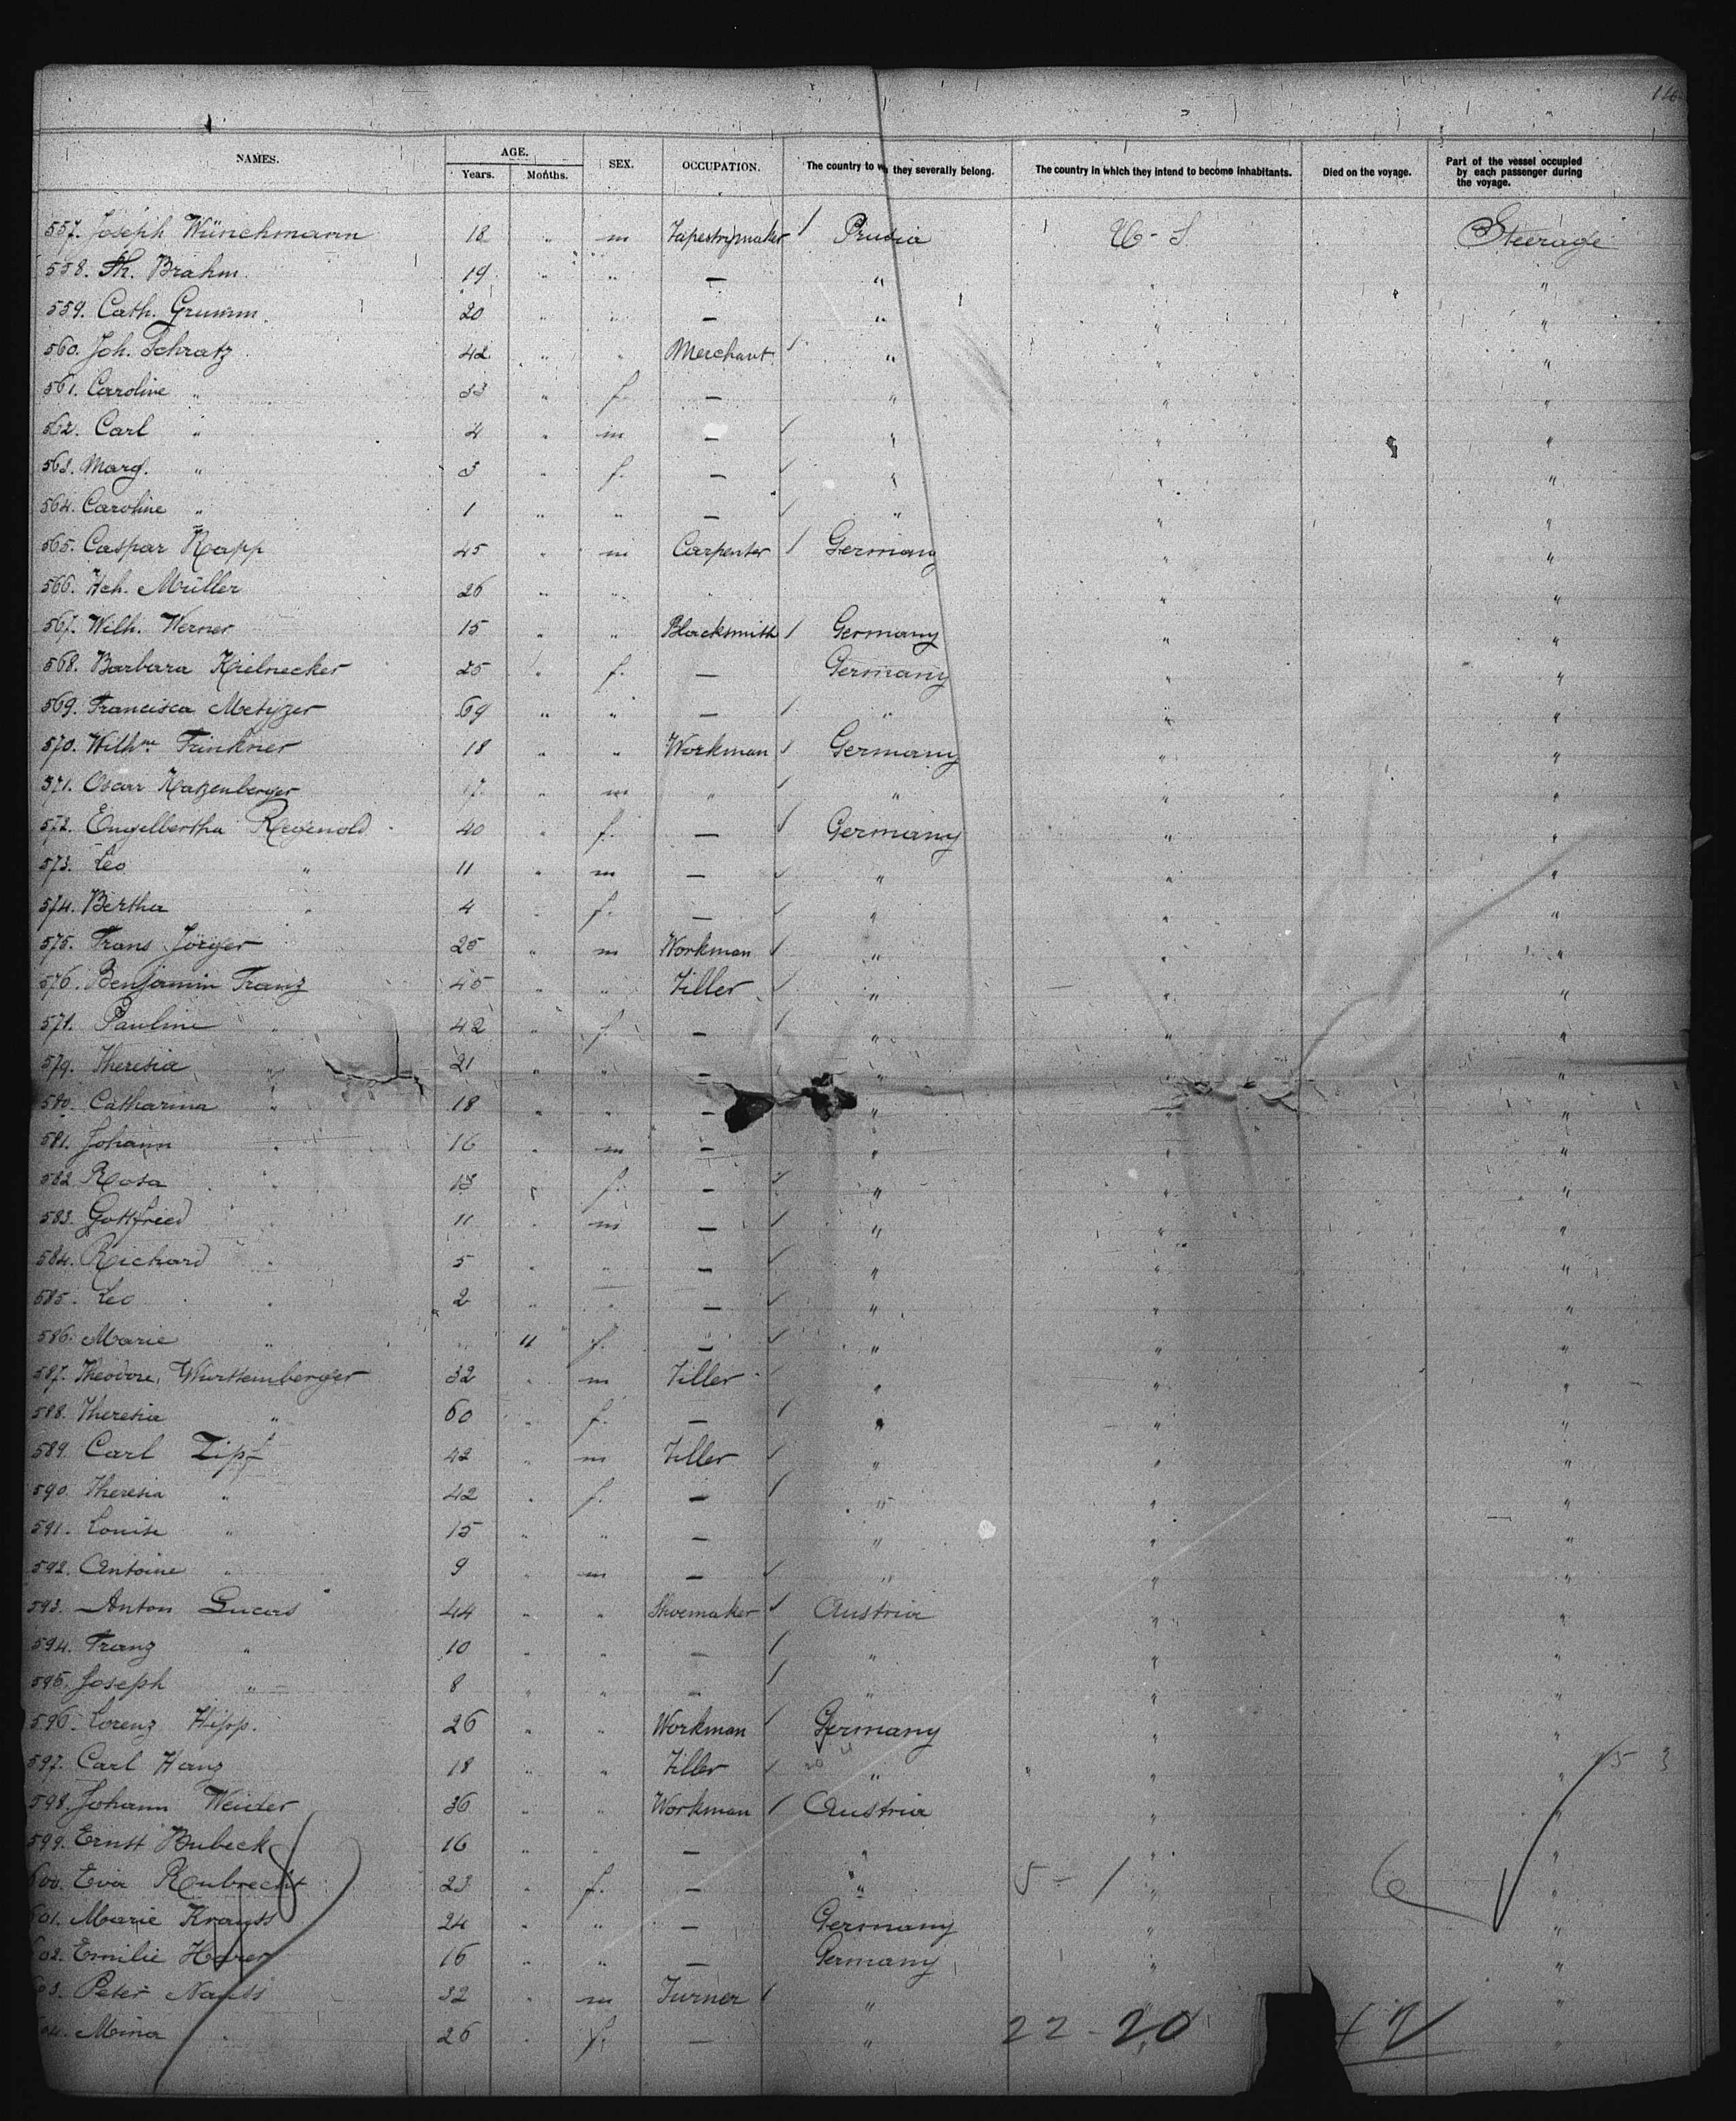 116
NAMES. AGE. Years. Months. SEX. OCCUPATION. The country to w they severally belong. The country in which they intend to become inhabitants. Died on the voyage. Part of the vessel occupied by each passenger during the voyage.
557. Joseph Wünchmann 18 " m Tapestrymaker / Prusia U-S. Steerage
558. Th. Brahm 19 " " — " " "
559. Cath. Grumm 20 " " — " " "
560. Joh. Schratz 42 " " Merchant / " " "
561. Caroline " 33 " f. — " " "
562. Carl " 4 " m — / " " "
563. Marg. " 3 " f. — / " " "
564. Caroline " 1 " " — / " " "
565. Caspar Rapp 45 " m Carpenter / Germany " "
566. Hch. Müller 26 " " " "
567. Wilh. Werner 15 " " Blacksmith / Germany " "
568. Barbara Kielnecker 25 " f. — Germany " "
569. Francisca Metyzer 69 " " — / " " "
570. Wilhm Trinkner 18 " " Workman / Germany " "
571. Oscar Katzenberger 17 " m " / " " "
572. Engelbertha Regenold 40 " f. — / Germany " "
573. Leo " 11 " m — / " " "
574. Bertha " 4 " f. — / " " "
575. Frans Jörger 25 " m Workman / " " "
576. Benjamin Franz 45 " " Tiller / " " "
578. Pauline " 42 " f. — / " " "
579. Theresia " 21 " " — " " "
580. Catharina " 18 " " — " " "
581. Johann " 16 " m — " " "
582 Rosa " 13 " f. — / " " "
583. Gottfried " 11 " m — / " " "
584. Richard " 5 " " — / " " "
585. Leo " 2 " " — / " " "
586. Marie " " 11 f. — / " " "
587. Theodore Württemberger 32 " m Tiller / " " "
588. Theresia " 60 " f. — / " " "
589. Carl Zipf 42 " m Tiller / " " "
590. Theresia " 42 " f. — / " " "
591. Louise " 15 " " — " " "
592. Antoine " 9 " m — / " " "
593. Anton Lucas 44 " " Shoemaker / Austria " "
594. Franz " 10 " " — / " " "
595. Joseph " 8 " " — / " " "
596. Lorenz Hipp. 26 " " Workman / Germany " "
597. Carl Hanz 18 " " Tiller / " " " 5 3
598. Johann Weider 36 " " Workman / Austria " "
599. Ernst Bubeck 16 " " — " " "
600. Eva Rubrecht 23 " f. — " 5 - 1 " 6 "
601. Marie Krauss 24 " " — Germany " "
602. Emilie Harer 16 " " — Germany " "
603. Peter Nauss 32 " m Turner / " " "
604. Mina " 26 " f. — " 22 - 20 "